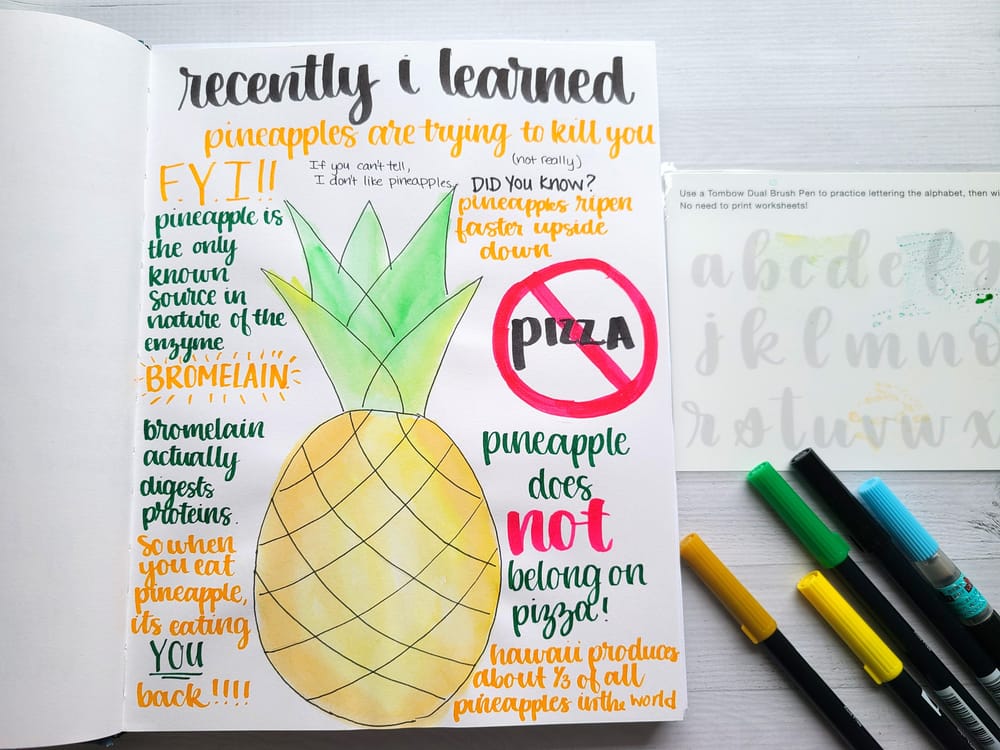 recently i learned
pineapples are trying to kill you
(not really)
If you can't tell,
I don't like pineapples
F.Y.I!!
pineapple is
the only
known
source in
nature of the
enzyme
BROMELAIN
bromelain
actually
digests
proteins.
So when
you eat
pineapple,
its eating
YOU
back!!!!
DID YOU KNOW?
pineapples ripen
faster upside
down
PIZZA
pineapple
does
not
belong on
pizza!
hawaii produces
about 1/3 of all
pineapples in the world
Use a Tombow Dual Brush Pen to practice lettering the alphabet, then wi
No need to print worksheets!
a b c d e f g
j k l m n o
r s t u v w x